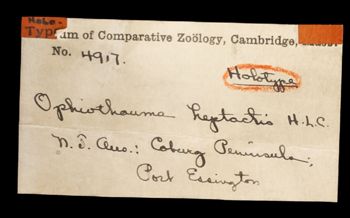 Holo-
Type
um of Comparative Zoölogy, Cambridge, Mass.
No. 4917.
Holotype
Ophiothauma heptactis H.L.C.
N.T. Aus.: Coburg Peninsula;
Port Essington